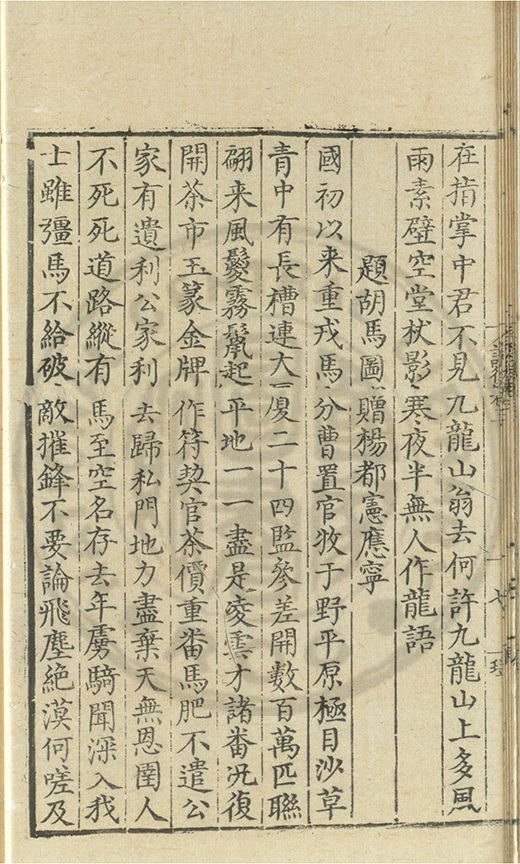 在指掌中君不見九龍山翁去何許九龍山上多風
雨素壁空堂杖影寒夜半無人作龍語
題胡馬圖贈楊都憲應寧
國初以来重戎馬分曹置官牧于野平原極目沙草
青中有長槽連大厦二十四監參差開數百萬匹聯
翩来風鬉霧鬣起平地一一盡是凌雲才諸番況復
開茶市玉篆金牌作符契官茶價重番馬肥不遣公
家有遺利公家利去歸私門地力盡棄天無恩圉人
不死死道路縱有馬至空名存去年虜騎聞深入我
士雖彊馬不給破敵摧鋒不要論飛塵絶漠何嗟及